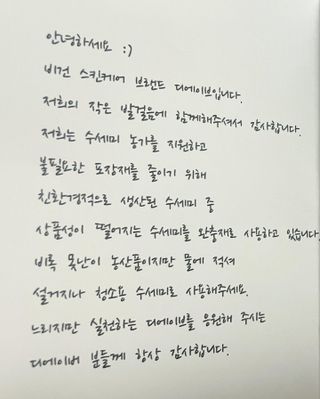 안녕하세요 :)
비건 스킨케어 브랜드 디에이브입니다.
저희의 작은 발걸음에 함께해주셔서 감사합니다.
저희는 수세미 농가를 지원하고
불필요한 포장재를 줄이기 위해
친환경적으로 생산된 수세미 중
상품성이 떨어지는 수세미를 완충재로 사용하고 있습니다.
비록 못난이 농산품이지만 물에 적셔
설거지나 청소용 수세미로 사용해주세요.
느리지만 실천하는 디에이브를 응원해 주시는
디에이버 분들께 항상 감사합니다.